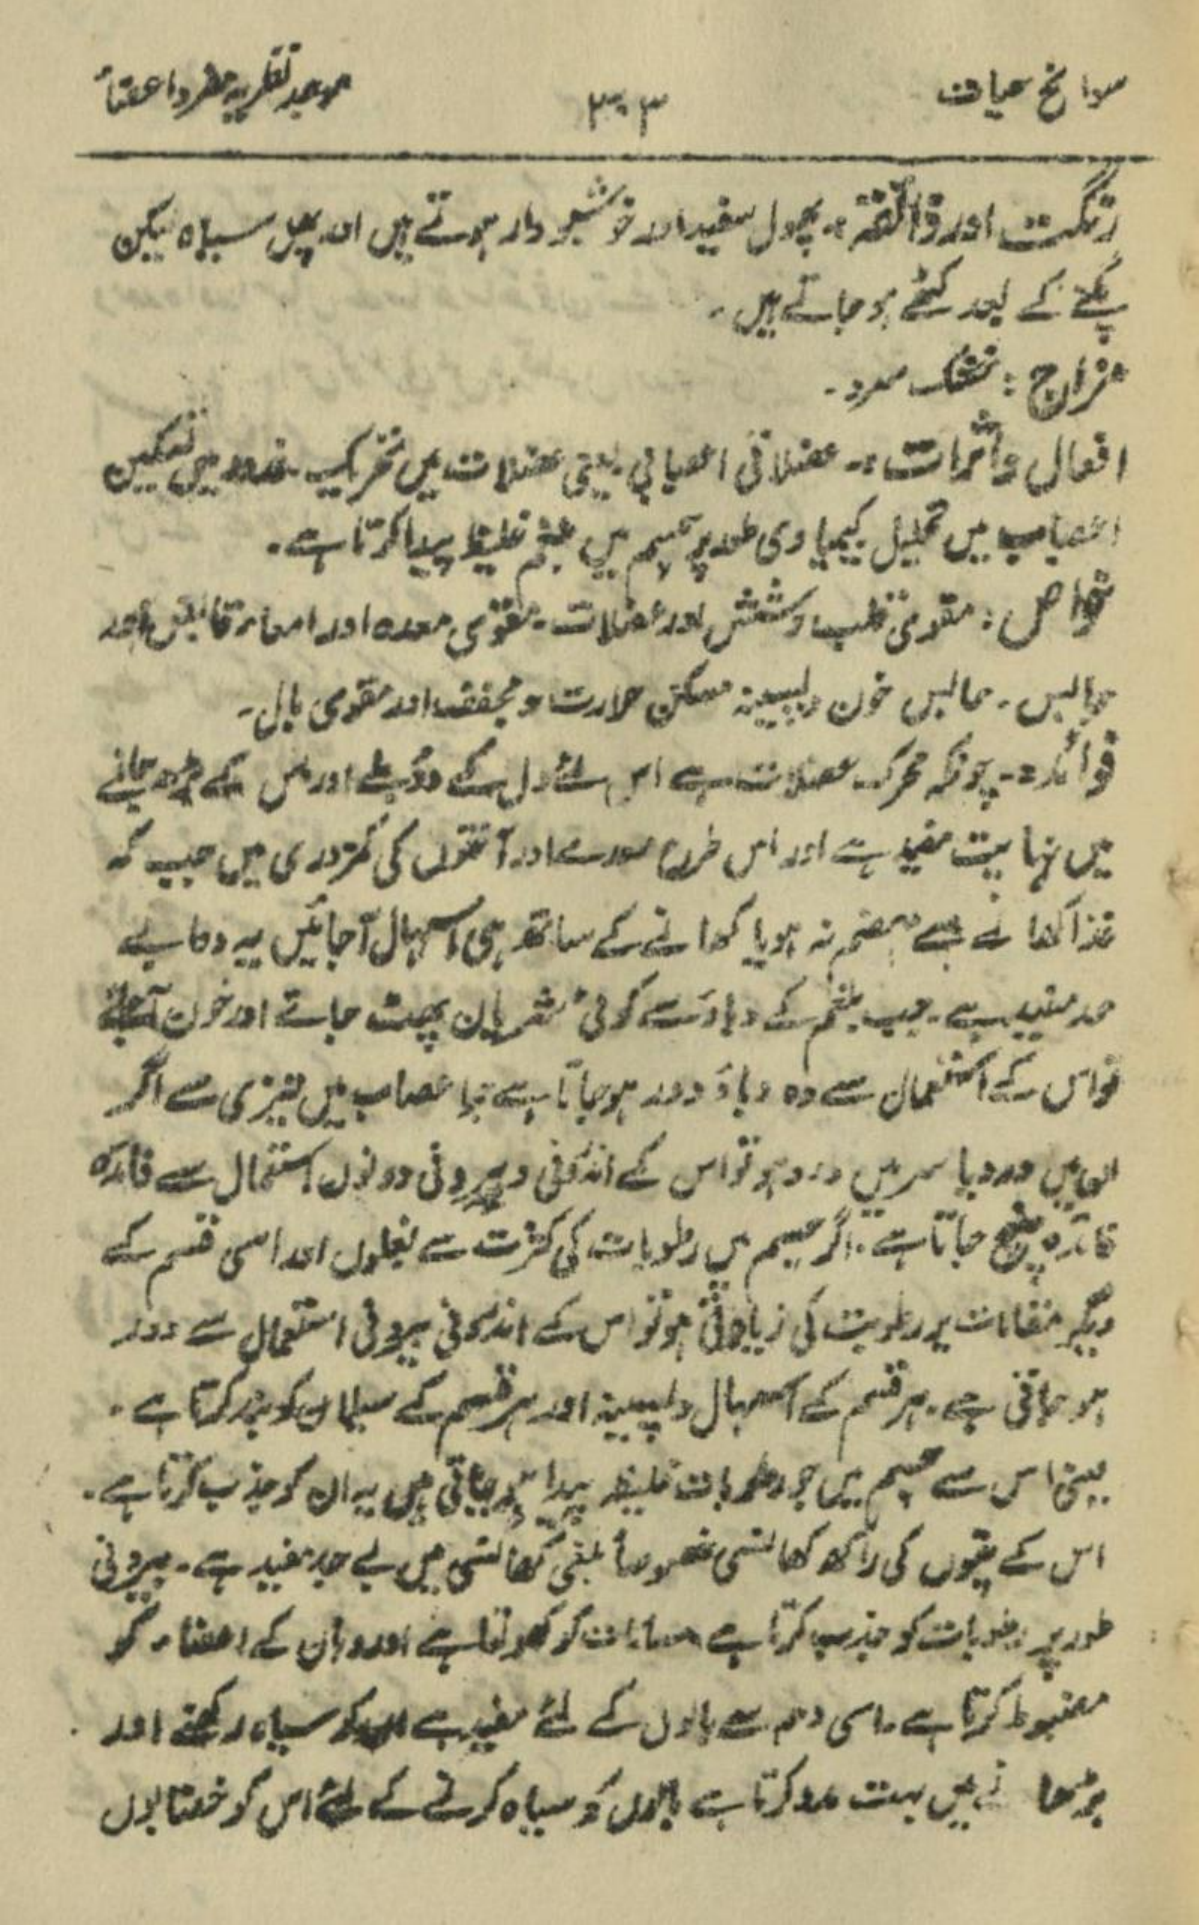 سوانح حیات ۳۰۳ موجد نظریہ مفرد اعضاء
رنگت اور ذائقہ :۔ پھول سفید اور خوشبو دار ہوتے ہیں اور پھل سیاہ لیکن
پکنے کے بعد کٹھے ہو جاتے ہیں ۔
مزاج : خشک سرد ۔
افعال و اثرات :۔ عضلاتی اعصابی یعنی عضلات میں تحریک غدد میں تسکین
اعصاب میں تحلیل کیمیاوی طور پر جسم میں بلغم غلیظ پیدا کرتا ہے ۔
خواص : مقوی قلب و شش اور عضلات ۔ مقوی معدہ اور امعاء قابض اور
حابس ۔ حابس خون و پسینہ مسکن حرارت و مجفف اور مقوی بال ۔
فوائد :۔ چونکہ محرک عضلات ہے اس لئے دل کے ڈوبنے اور اس کے بڑھ جانے
میں نہایت مفید ہے اور اس طرح معدے اور آنتوں کی کمزوری میں جب کہ
غذا کھانے سے ہضم نہ ہو یا کھانے کے ساتھ ہی اسہال آجائیں یہ دوا بے
حد مفید ہے ۔ جب بلغم کے دباؤ سے کوئی شریان پھٹ جاتے اور خون آجاتے
تو اس کے استعمال سے وہ دباؤ دور ہو جاتا ہے یا اعصاب میں تیزی سے اگر
ان میں درد یا سر میں درد ہو تو اس کے اندرونی و بیرونی دونوں استعمال سے فائدہ
فائدہ پہنچ جاتا ہے ۔ اگر جسم میں رطوبات کی کثرت سے بغلوں اور اسی قسم کے
دیگر مقامات پر رطوبت کی زیادتی ہو تو اس کے اندرونی بیرونی استعمال سے دور
ہو جاتی ہے ۔ ہر قسم کے اسہال و پسینہ اور ہر قسم کے سیلان کو بند کرتا ہے ۔
یعنی اس سے جسم میں جو رطوبات غلیظہ پیدا ہو جاتی ہیں یہ ان کو جذب کرتا ہے ۔
اس کے پتوں کی راکھ کھانسی خصوصاً بلغمی کھانسی میں بے حد مفید ہے ۔ بیرونی
طور پر رطوبات کو جذب کرتا ہے مسامات کو کھولتا ہے اور وہاں کے اعضاء کو
مضبوط کرتا ہے ۔ اسی وجہ سے بالوں کے لئے مفید ہے ان کو سیاہ رکھنے اور
بڑھانے میں بہت مدد کرتا ہے بالوں کو سیاہ کرنے کے لئے اس کو خضابوں